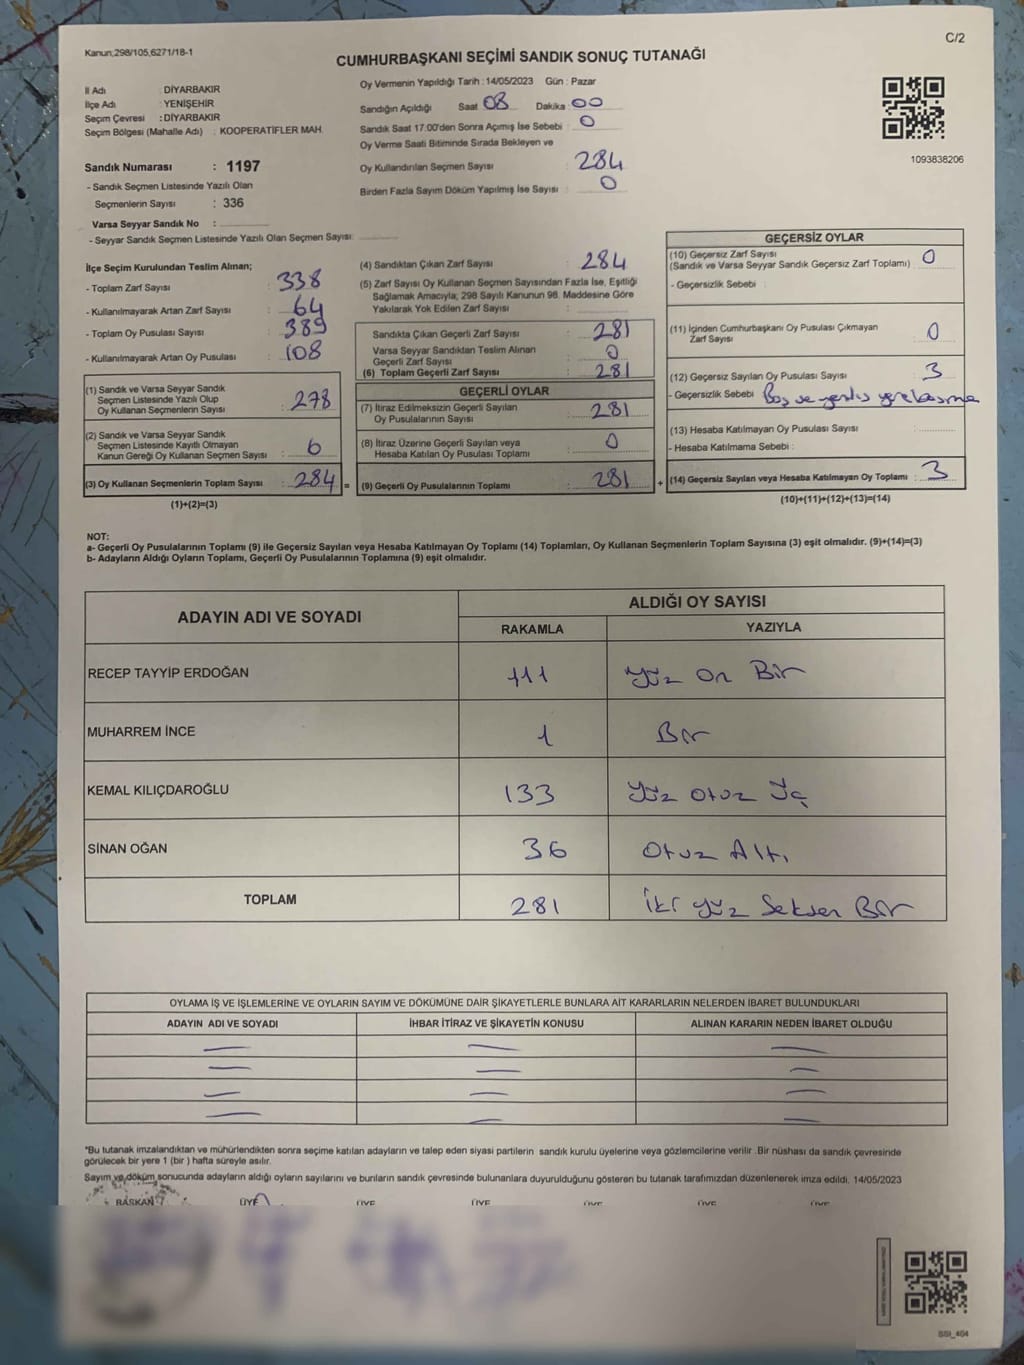 Kanun;298/105,6271/18-1
C/2
CUMHURBAŞKANI SEÇİMİ SANDIK SONUÇ TUTANAĞI
İl Adı : DİYARBAKIR
İlçe Adı : YENİŞEHİR
Seçim Çevresi : DİYARBAKIR
Seçim Bölgesi (Mahalle Adı) : KOOPERATİFLER MAH.
Sandık Numarası : 1197
- Sandık Seçmen Listesinde Yazılı Olan
Seçmenlerin Sayısı : 336
Varsa Seyyar Sandık No :
- Seyyar Sandık Seçmen Listesinde Yazılı Olan Seçmen Sayısı:
Oy Vermenin Yapıldığı Tarih : 14/05/2023 Gün : Pazar
Sandığın Açıldığı Saat 08 Dakika 00
Sandık Saat 17:00'den Sonra Açımış İse Sebebi : 0
Oy Verme Saati Bitiminde Sırada Bekleyen ve
Oy Kullandırılan Seçmen Sayısı : 284
Birden Fazla Sayım Döküm Yapılmış İse Sayısı : 0
1093838206
İlçe Seçim Kurulundan Teslim Alınan;
- Toplam Zarf Sayısı : 338
- Kullanılmayarak Artan Zarf Sayısı : 64
- Toplam Oy Pusulası Sayısı : 389
- Kullanılmayarak Artan Oy Pusulası : 108
(1) Sandık ve Varsa Seyyar Sandık
Seçmen Listesinde Yazılı Olup
Oy Kullanan Seçmenlerin Sayısı : 278
(2) Sandık ve Varsa Seyyar Sandık
Seçmen Listesinde Kayıtlı Olmayan
Kanun Gereği Oy Kullanan Seçmen Sayısı : 6
(3) Oy Kullanan Seçmenlerin Toplam Sayısı : 284 =
(1)+(2)=(3)
(4) Sandıktan Çıkan Zarf Sayısı : 284
(5) Zarf Sayısı Oy Kullanan Seçmen Sayısından Fazla İse, Eşitliği
Sağlamak Amacıyla; 298 Sayılı Kanunun 98. Maddesine Göre
Yakılarak Yok Edilen Zarf Sayısı :
Sandıkta Çıkan Geçerli Zarf Sayısı : 281
Varsa Seyyar Sandıktan Teslim Alınan
Geçerli Zarf Sayısı : 0
(6) Toplam Geçerli Zarf Sayısı : 281
GEÇERLİ OYLAR
(7) İtiraz Edilmeksizin Geçerli Sayılan
Oy Pusulalarının Sayısı : 281
(8) İtiraz Üzerine Geçerli Sayılan veya
Hesaba Katılan Oy Pusulası Toplamı : 0
(9) Geçerli Oy Pusulalarının Toplamı : 281 +
GEÇERSİZ OYLAR
(10) Geçersiz Zarf Sayısı
(Sandık ve Varsa Seyyar Sandık Geçersiz Zarf Toplamı) : 0
- Geçersizlik Sebebi :
(11) İçinden Cumhurbaşkanı Oy Pusulası Çıkmayan
Zarf Sayısı : 0
(12) Geçersiz Sayılan Oy Pusulası Sayısı : 3
- Geçersizlik Sebebi : Boş ve
(13) Hesaba Katılmayan Oy Pusulası Sayısı :
- Hesaba Katılmama Sebebi :
(14) Geçersiz Sayılan veya Hesaba Katılmayan Oy Toplamı : 3
(10)+(11)+(12)+(13)=(14)
NOT:
a- Geçerli Oy Pusulalarının Toplamı (9) ile Geçersiz Sayılan veya Hesaba Katılmayan Oy Toplamı (14) Toplamları, Oy Kullanan Seçmenlerin Toplam Sayısına (3) eşit olmalıdır. (9)+(14)=(3)
b- Adayların Aldığı Oyların Toplamı, Geçerli Oy Pusulalarının Toplamına (9) eşit olmalıdır.
ADAYIN ADI VE SOYADI
ALDIĞI OY SAYISI
RAKAMLA YAZIYLA
RECEP TAYYİP ERDOĞAN 111 Yüz On Bir
MUHARREM İNCE 1 Bir
KEMAL KILIÇDAROĞLU 133 Yüz Otuz Üç
SİNAN OĞAN 36 Otuz Altı
TOPLAM 281 İki Yüz Seksen Bir
OYLAMA İŞ VE İŞLEMLERİNE VE OYLARIN SAYIM VE DÖKÜMÜNE DAİR ŞİKAYETLERLE BUNLARA AİT KARARLARIN NELERDEN İBARET BULUNDUKLARI
ADAYIN ADI VE SOYADI İHBAR İTİRAZ VE ŞİKAYETİN KONUSU ALINAN KARARIN NEDEN İBARET OLDUĞU
*Bu tutanak imzalandıktan ve mühürlendikten sonra seçime katılan adayların ve talep eden siyasi partilerin sandık kurulu üyelerine veya gözlemcilerine verilir. Bir nüshası da sandık çevresinde
görülecek bir yere 1 (bir) hafta süreyle asılır.
Sayım ve döküm sonucunda adayların aldığı oyların sayılarını ve bunların sandık çevresinde bulunanlara duyurulduğunu gösteren bu tutanak tarafımızdan düzenlenerek imza edildi. 14/05/2023
BAŞKAN ÜYE ÜYE ÜYE ÜYE ÜYE ÜYE
SSI_404